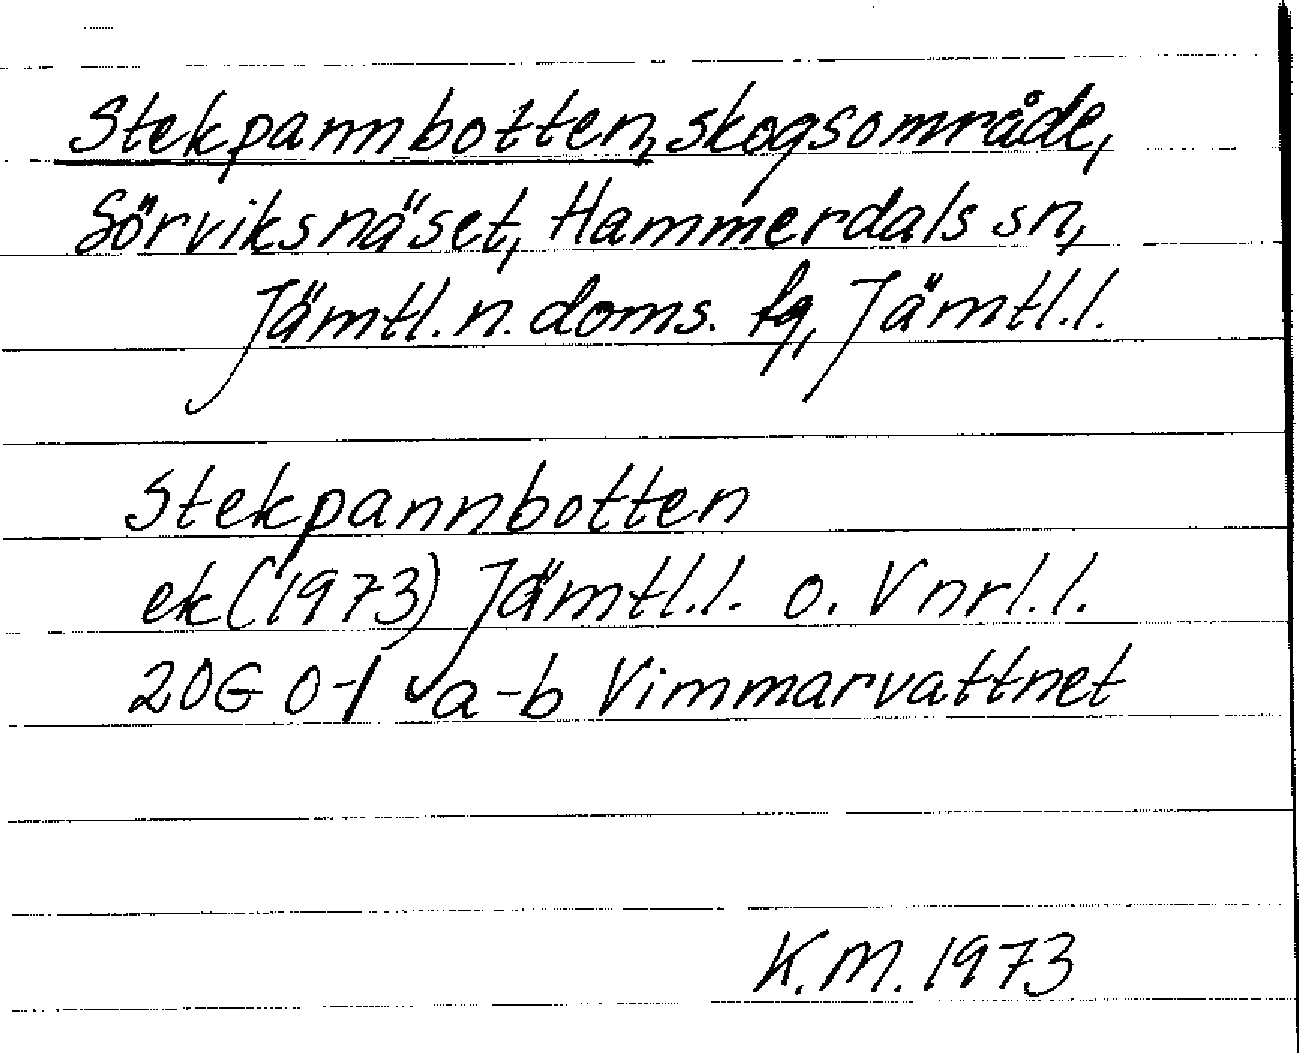 Stekpannbotten, skogsområde,
Sörviksnäset, Hammerdals sn,
Jämtl. n. doms. fg, Jämtl.l.
Stekpannbotten
ek (1973) Jämtl.l. o. Vnrl.l.
20G 0-1 a-b Vimmarvattnet
K.M. 1973